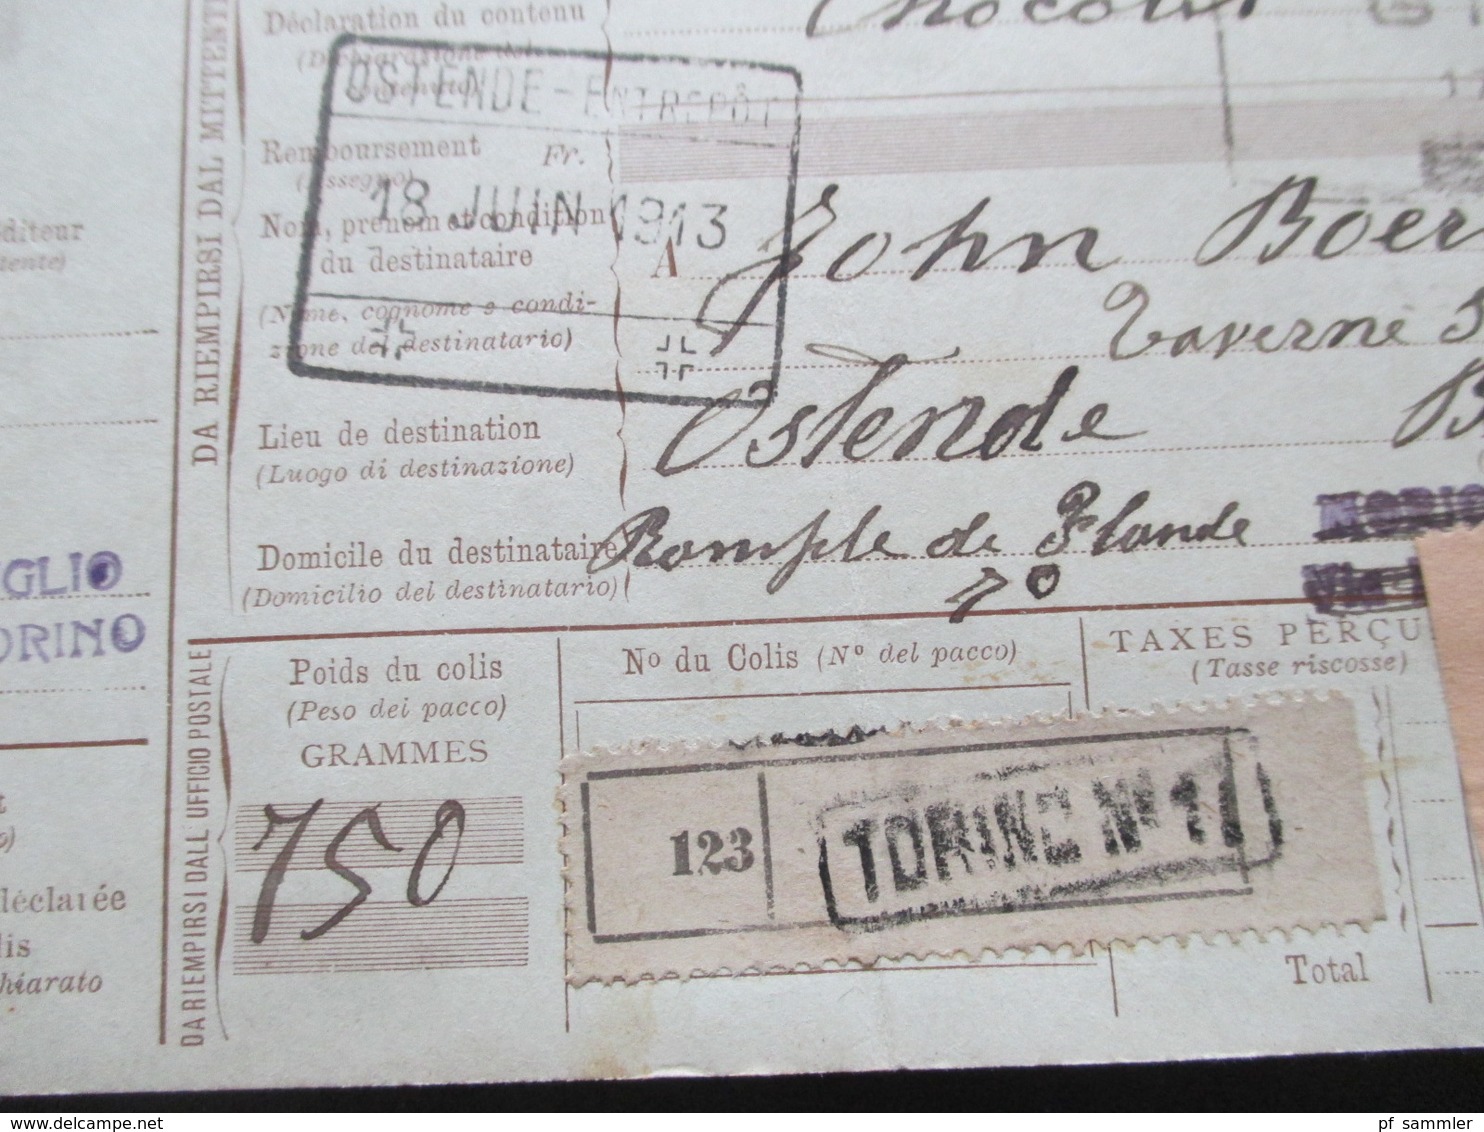 Déclaration du contenu
(Dichiarazione del
contenuto)
Chocolat
OSTENDE-ENTREPÔT
18 JUIN 1913
Remboursement Fr.
(Assegno)
Nom, prénom et condition
du destinataire
(Nome, cognome e condi-
zione del destinatario)
A John
Taverne
Lieu de destination
(Luogo di destinazione)
Ostende B
Domicile du destinataire
(Domicilio del destinatario)
de Flandre
70
DA RIEMPIRSI DAL MITTENTE
éditeur
tente)
GLIO
ORINO
déclarée
lis
hiarato
DA RIEMPIRSI DALL' UFFICIO POSTALE
Poids du colis
(Peso dei pacco)
GRAMMES
750
No du Colis (No del pacco)
123
TORINO No 1
TAXES PERÇU
(Tasse riscosse)
Total
pf_sammler